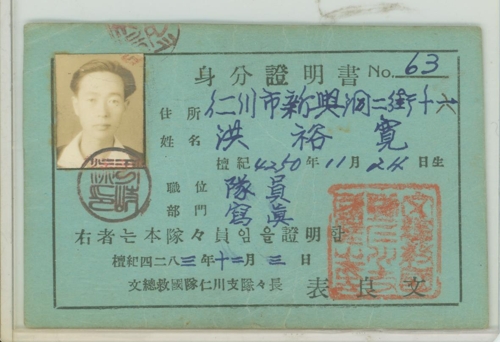 身分證明書 No. 63
住所 仁川市新興洞二街十六
姓名 洪裕寬
檀紀4250年11月24日生
職位 隊員
部門 寫眞
右者는本隊々員임을證明함
檀紀四二八三年十二月三日
文總救國隊仁川支隊々長 表良文